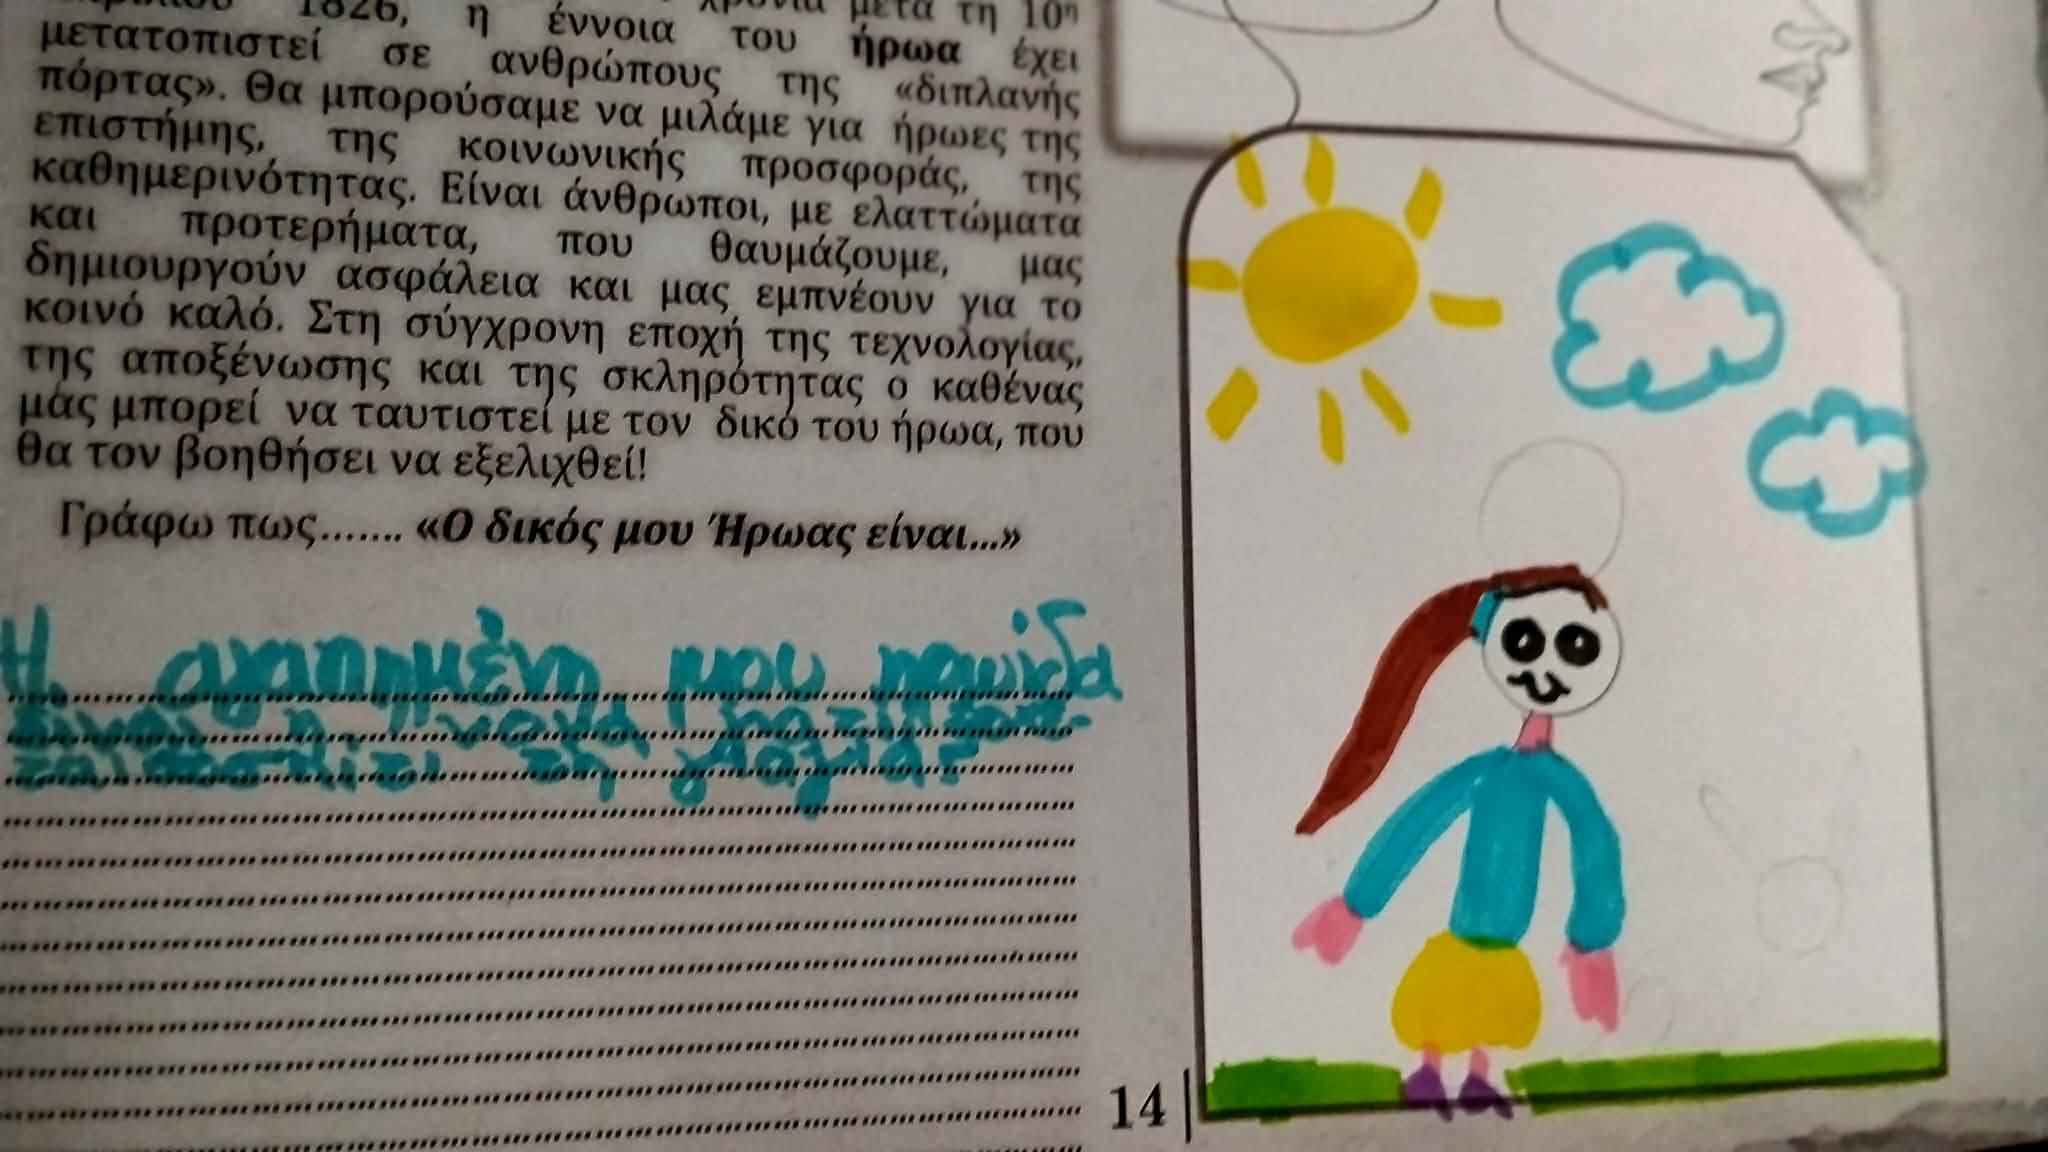 1826, η έννοια του ήρωα έχει
μετατοπιστεί σε ανθρώπους της «διπλανής
πόρτας». Θα μπορούσαμε να μιλάμε για ήρωες της
επιστήμης, της κοινωνικής προσφοράς, της
καθημερινότητας. Είναι άνθρωποι, με ελαττώματα
και προτερήματα, που θαυμάζουμε, μας
δημιουργούν ασφάλεια και μας εμπνέουν για το
κοινό καλό. Στη σύγχρονη εποχή της τεχνολογίας,
της αποξένωσης και της σκληρότητας ο καθένας
μας μπορεί να ταυτιστεί με τον δικό του ήρωα, που
θα τον βοηθήσει να εξελιχθεί!
Γράφω πως....... «Ο δικός μου Ήρωας είναι...»
Η αγαπημένη μου
είναι η
της γιαγιάς
14